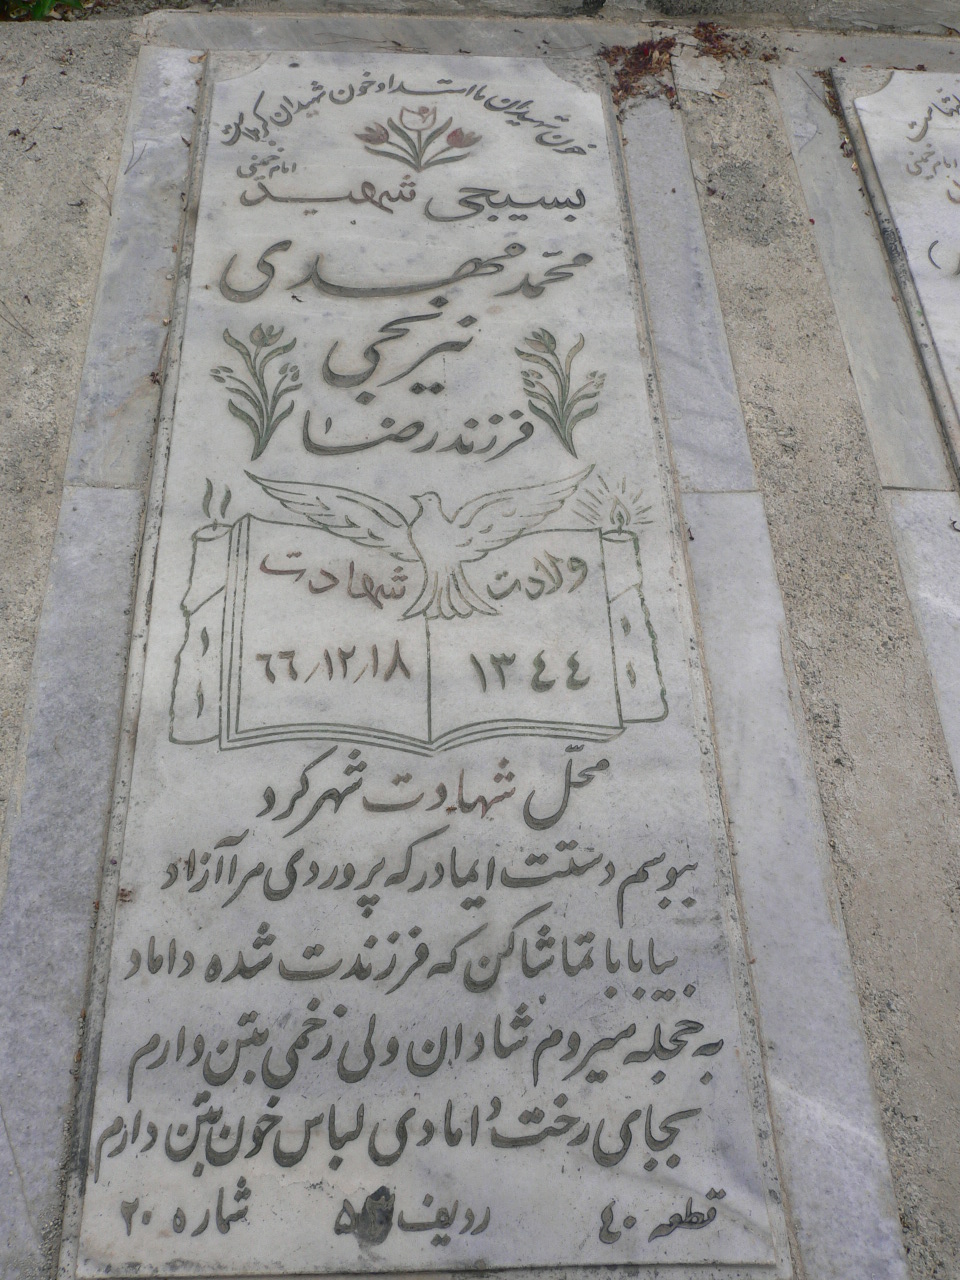 خون شهیدان ما امتداد خون شهیدان کربلاست
امام خمینی
بسیجی شهید
محمّد مهدی
نیرنجی
فرزند رضا
ولادت شهادت
۱۳۴۴ ۶۶/۱۲/۱۸
محلّ شهادت شهر کرد
ببوسم دستت ایمادر که پروردی مرا آزاد
بیا بابا تماشا کن که فرزندت شده داماد
به حجله میروم شادان ولی زخمی بتن دارم
بجای رخت دامادی لباس خون بتن دارم
قطعه ۴۰ ردیف شماره ۲۰